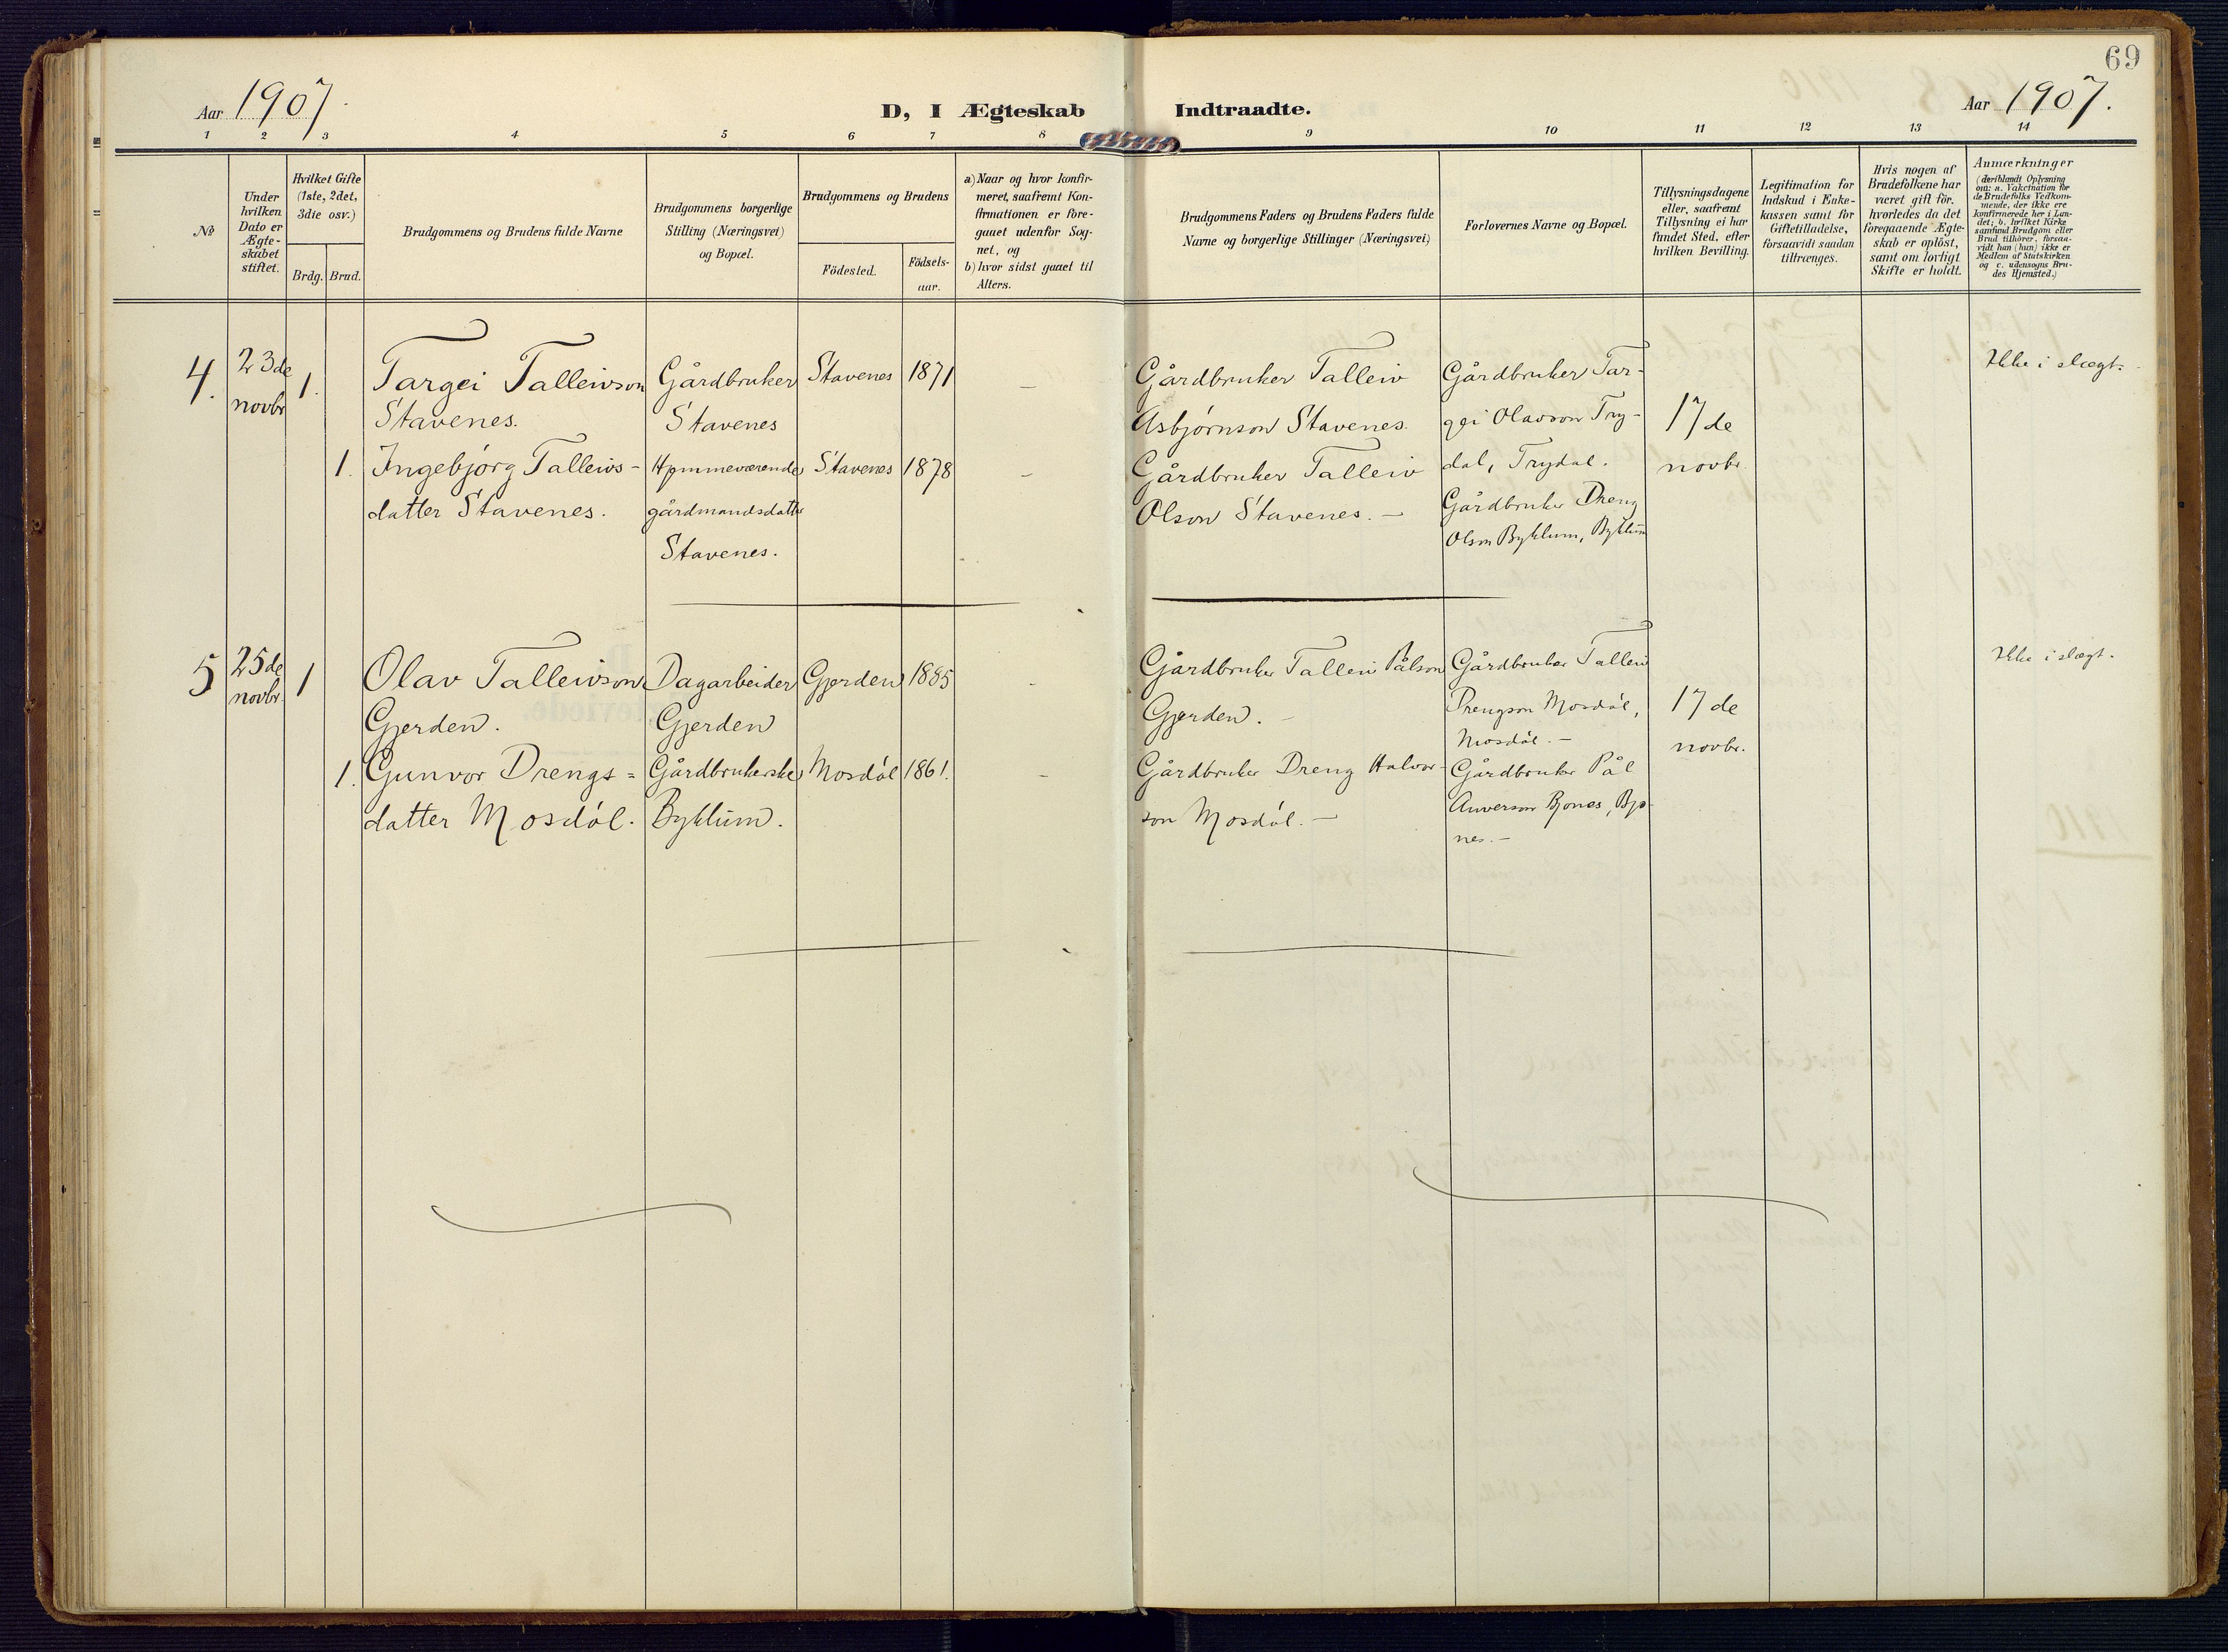 69
Aar 1907.
D, I Ægteskab Indtraadte.
Aar 1907.
1 2 3 4 5 6 7 8 9 10 11 12 13 14
No
Under
hvilken
Dato er
Ægte-
skabet
stiftet.
Hvilket Gifte
(1ste, 2det,
3die osv.)
Brdg. Brud.
Brudgommens og Brudens fulde Navne
Brudgommens borgerlige
Stilling (Næringsvei)
og Bopæl.
Brudgommens og Brudens
Födested.
Födsels-
aar.
a) Naar og hvor konfir-
meret, saafremt Kon-
firmationen er fore-
gaaet udenfor Sog-
net, og
b) hvor sidst gaaet til
Alters.
Brudgommens Faders og Brudens Faders fulde
Navne og borgerlige Stillinger (Næringsvei)
Forlovernes Navne og Bopæl.
Tillysningsdagene
eller, saafremt
Tillysning ei har
fundet Sted, efter
hvilken Bevilling.
Legitimation for
Indskud i Enke-
kassen samt for
Giftetilladelse,
forsaavidt saadan
tiltrænges.
Hvis nogen af
Brudefolkene har
været gift för,
hvorledes da det
foregaaende Ægte-
skab er oplöst,
samt om lovligt
Skifte er holdt.
Anmærkninger
(deriblandt Oplysning
om: a. Vakcination for
de Brudefolks Vedkom-
mende, der ikke ere
konfirmerede her i Lan-
det; b. hvilket Kirke
samfund Brudgom eller
Brud tilhörer, forsaa-
vidt han (hun) ikke er
Medlem af Statskirken
og c. udensogns Bru-
des Hjemsted.)
4.
23de
novbr
1.
Targei Talleivson
Stavenes.
Gårdbruker
Stavenes
Stavenes
1871
–
Gårdbruker Talleiv
Asbjørnson Stavenes.
Gårdbruker Tar-
gei Olavson Try-
dal, Trydal.
17 de
novbr.
Ikke i slægt.
1.
Ingebjørg Talleivs-
datter Stavenes.
Hjemmeværende
gårdmandsdatter
Stavenes.
Stavenes
1878
–
Gårdbruker Talleiv
Olson Stavenes. –
Gårdbruker Dreng
Olson Byklum, Byklum
5
25de
novbr.
1
Olav Talleivson
Gjerden.
Dagarbeider
Gjerden
Gjerden
1885
-
Gårdbruker Talleiv Pålson
Gjerden. –
Gårdbruker Talleiv
Drengson Mosdøl,
Mosdøl. –
17 de
novbr.
Ikke i slægt.
1.
Gunvor Drengs=
datter Mosdøl.
Gårdbrukerske
Byklum.
Mosdøl
1861.
-
Gårdbruker Dreng Halvor-
son Mosdøl. –
Gårdbruker Pål
Anverson Bjones, Bjo-
nes. –